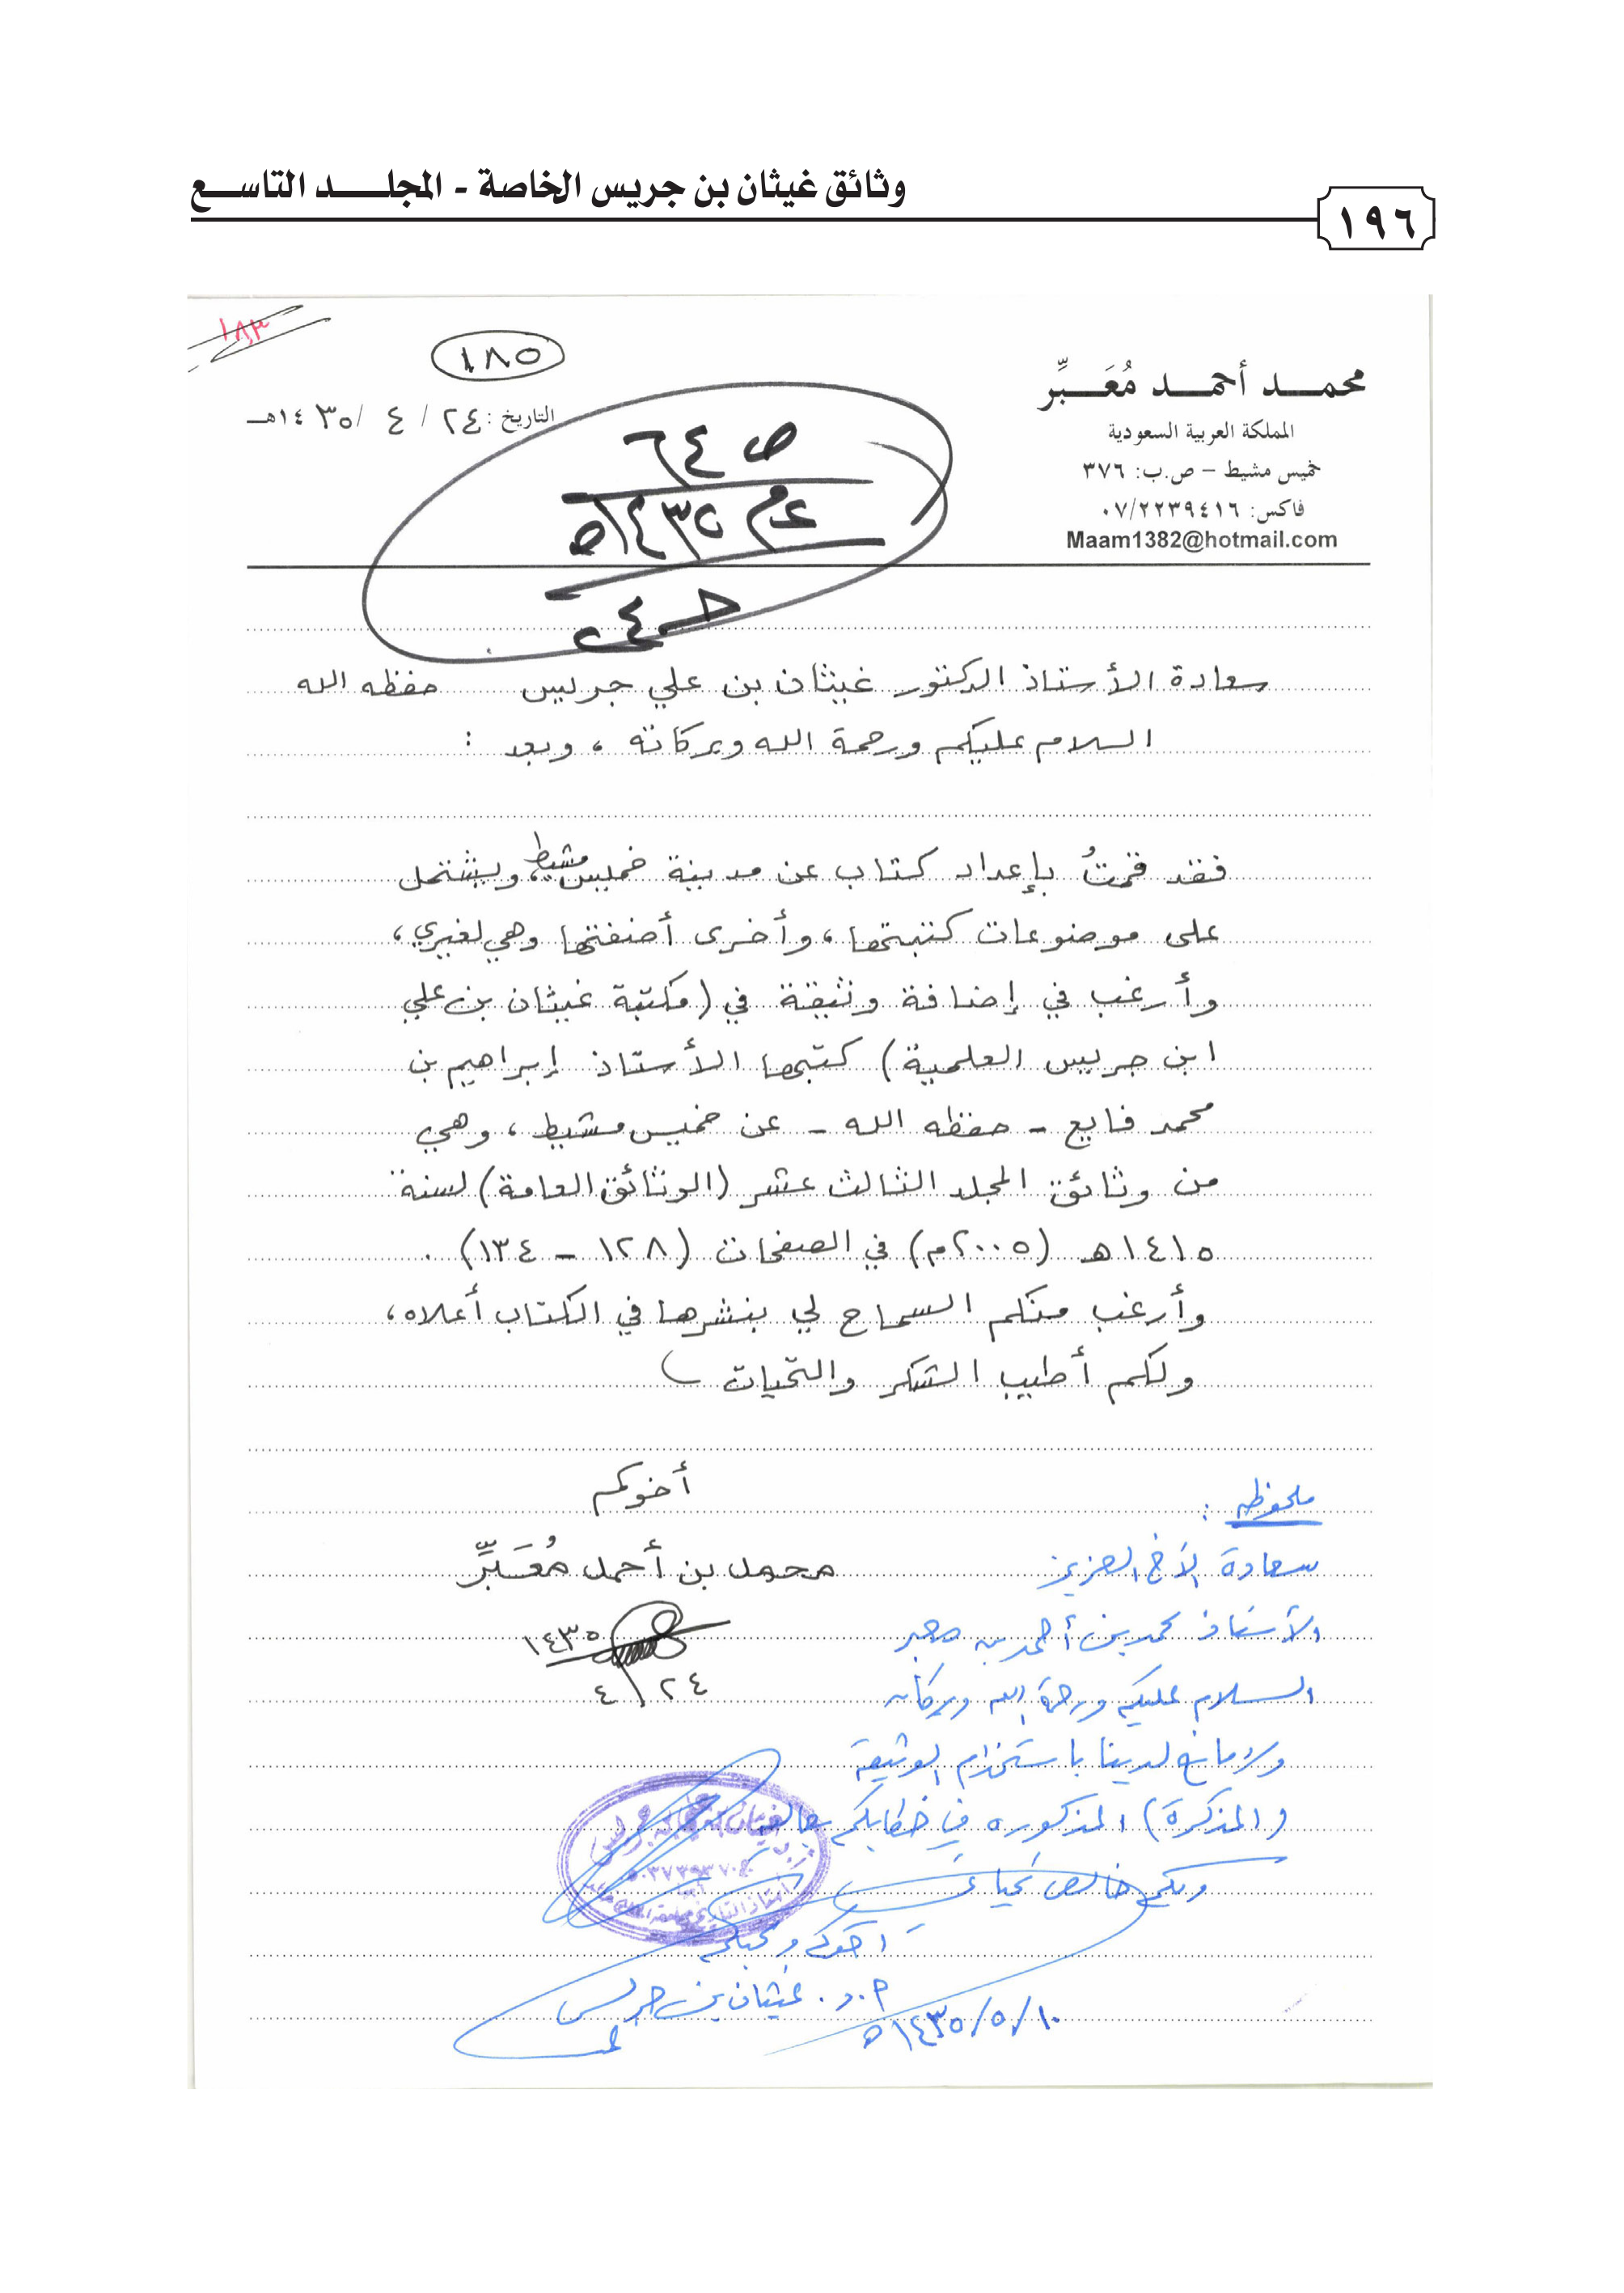 وثائق غيثان بن جريس الخاصة - المجلـــد التاســـع
١٩٦
١٨٣
١٨٥
محمـــد أحمـــد مُعَـــبِّر
المملكة العربية السعودية
خميس مشيط – ص.ب: ٣٧٦
فاكس: ٠٧/٢٢٣٩٤١٦
Maam1382@hotmail.com
التاريخ: ٢٤ / ٤ / ١٤٣٥هـ
ص ٦٤
١٤٣٥ه
سعادة الأستاذ الدكتور غيثان بن علي جريس حفظه الله
السلام عليكم ورحمة الله وبركاته ، وبعد :
فقد قمتُ بإعداد كتاب عن مدينة خميس مشيط، ويشتمل
على موضوعات كتبتها، وأخرى أضفتها وهي لغيري،
وأرغب في إضافة وثيقة في (مكتبة غيثان بن علي
ابن جريس العلمية) كتبها الأستاذ إبراهيم بن
محمد فايع - حفظه الله - عن خميس مشيط ، وهي
من وثائق المجلد الثالث عشر (الوثائق العامة) لسنة
١٤١٥ه (٢٠٠٥م) في الصفحات (١٢٨ - ١٣٤) .
وأرغب منكم السماح لي بنشرها في الكتاب أعلاه،
ولكم أطيب الشكر والتحيات
أخوكم
محمد بن أحمد مُعَبِّر
١٤٣٥
٢٤/٤
ملحوظه :
سعادة الأخ العزيز
الأستاذ محمد بن أحمد بن معبر
السلام عليكم ورحمة الله وبركاته
ولا مانع لدينا باستخدام الوثيقة
(المذكرة) المذكوره في خطابكم
ولكم خالص تحياتي
أخوكم ومحبكم
أ.د. غيثان بن جريس
١٠/٥/١٤٣٥ه